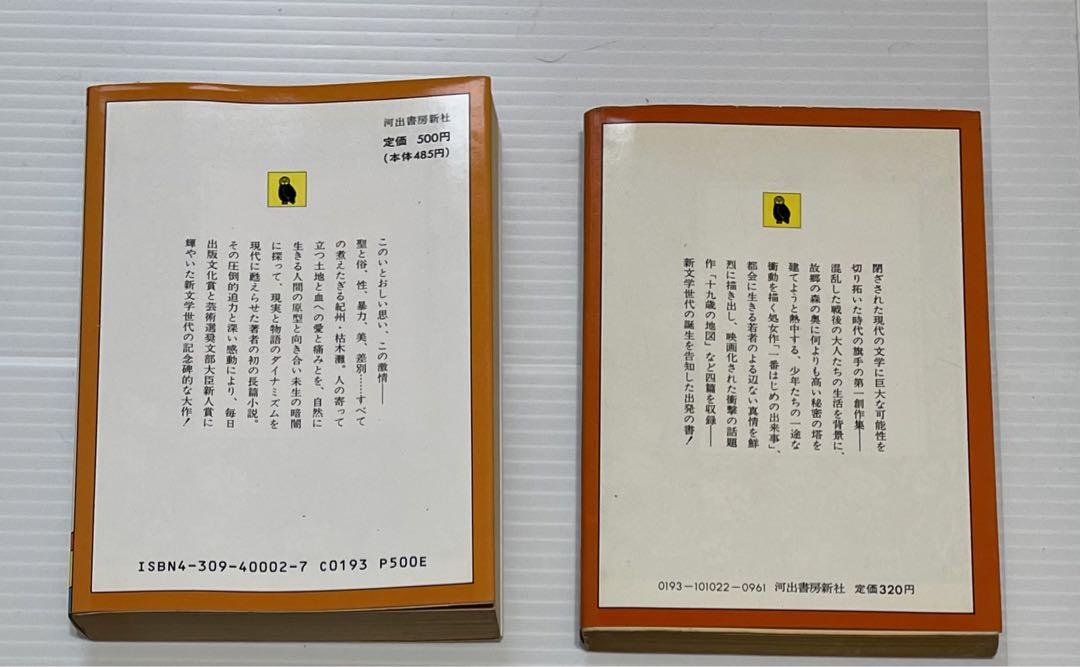 河出書房新社
定価 500円
(本体485円)
このいとおしい思い、この激情──
聖と俗、性、暴力、美、差別……すべて
の煮えたぎる紀州・枯木灘。人の寄って
立つ土地と血への愛と痛みとを、自然に
生きる人間の原型と向き合い未生の暗闇
に探って、現実と物語のダイナミズムを
現代に甦えらせた著者の初の長篇小説。
その圧倒的迫力と深い感動により、毎日
出版文化賞と芸術選奨文部大臣新人賞に
輝やいた新文学世代の記念碑的な大作!
ISBN4-309-40002-7 C0193 P500E
閉ざされた現代の文学に巨大な可能性を
切り拓いた時代の旗手の第一創作集──
混乱した戦後の大人たちの生活を背景に、
故郷の森の奥に何よりも高い秘密の塔を
建てようと熱中する、少年たちの一途な
衝動を描く処女作「一番はじめの出来事」、
都会に生きる若者のよる辺ない真情を鮮
烈に描き出し、映画化された衝撃の話題
作「十九歳の地図」など四篇を収録──
新文学世代の誕生を告知した出発の書!
0193-101022-0961 河出書房新社 定価320円